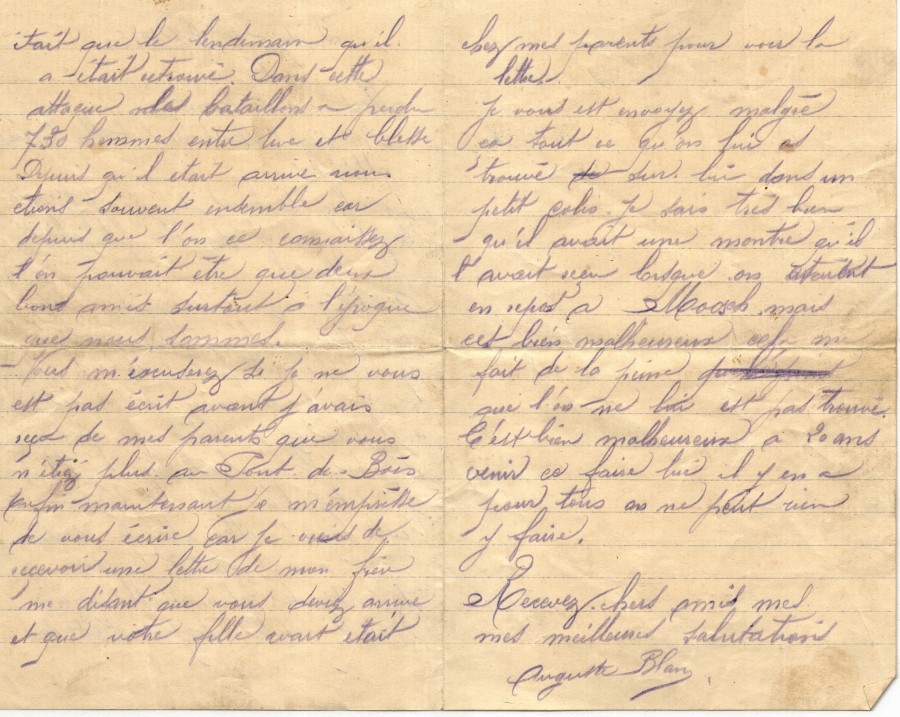 était que le lendemain qu'il
a était retrouvé. Dans cette
attaque les bataillons a perdu
730 hommes entre tue et blesse
Depuis qu'il était arrive nous
etions souvent endemble car
depuis que l'on ce connaissez
l'on pouvait être que deux
bons amis surtout a l'époque
que nous sommes.
Vous m'éxcuserez si je ne vous
est pas écrit avant j'avais
reçu de mes parents que vous
n'étiez plus au Pont de Bois
enfin maintenant je m'empresse
de vous écrire car je viens de
recevoir une lettre de mon frère
me disant que vous deviez arrive
et que votre fille avait était
chez mes parents pour voir la
lettre.
Je vous est envoyez malgré
ca tout ce qu'on lui as
trouvé sur lui dans un
petit colis. Je sais très bien
qu'il avait une montre qu'il
l'avait reçu lorsque on était
en repos a Moosch mais
cet bien malheureux cela me
fait de la peine
que l'on ne lui est pas trouvé.
C'est bien malheureux a 20 ans
venir ce faire tué il y en a
pour tous on ne peut rien
y faire.
Recevez chers amis mes
mes meilleures salutations
Auguste Blanc